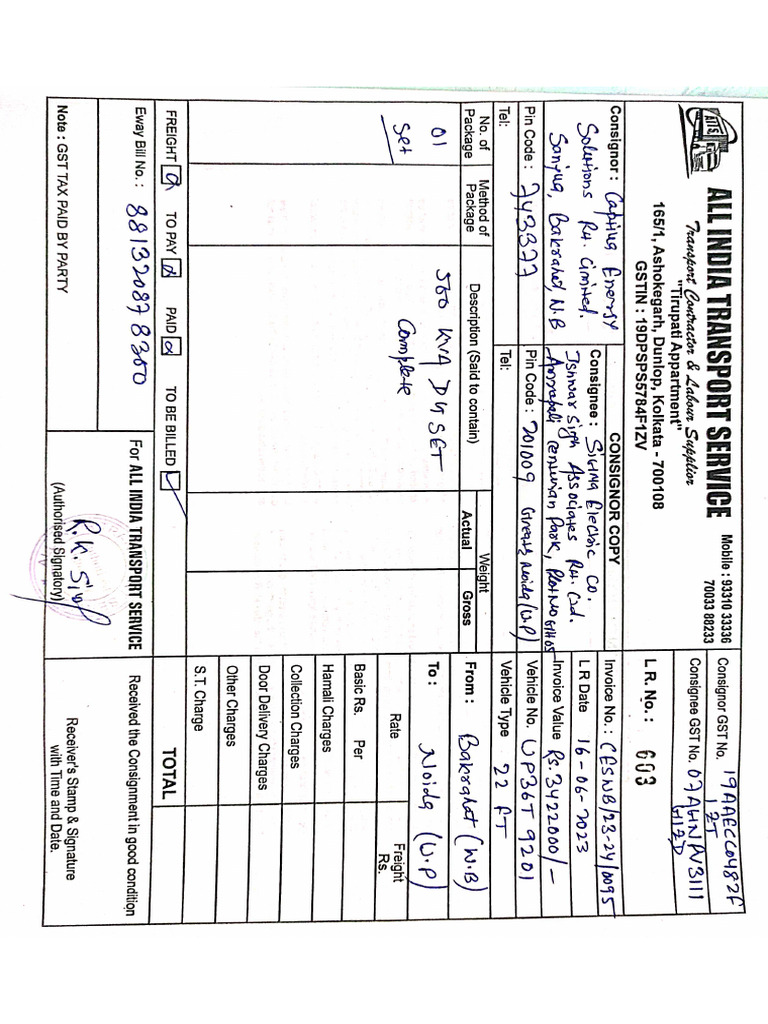 ATTS
ALL INDIA TRANSPORT SERVICE
Transport Contractor & Labour Supplier
"Tirupati Appartment"
165/1, Ashokegarh, Dunlop, Kolkata - 700108
GSTIN : 19DPSPS5784F1ZV
Mobile : 93310 33336
70033 88233
Consignor GST No. 19AAECC0482F
1ZT
Consignee GST No. 07AHNPV3111
H1ZD
CONSIGNOR COPY
L.R. No. : 603
Consignor : Captiva Energy
Solutions Pvt. Limited.
Sanjua, Bakrahat, W.B
Pin Code : 743377
Tel:
Consignee : Sigma Electric Co.
Ishwar Sigh Associates Pvt. Ltd.
Amrapali Centurian Park, Plot No GH05
Pin Code : 201009 Greater Noida (U.P)
Tel:
Invoice No. : CESNB/23-24/0095
L R Date 16-06-2023
Invoice Value Rs. 3422000/-
Vehicle No. UP36T 9201
Vehicle Type 22 FT
No. of Package
Method of Package
Description (Said to contain)
Weight
Actual
Gross
From : Bakrahat (W.B)
To : Noida (U.P)
01
Set
500 KVA DG SET
Complete
Rate
Freight Rs.
Basic Rs. Per
Hamali Charges
Collection Charges
Door Delivery Charges
Other Charges
S.T. Charge
TOTAL
FREIGHT TO PAY PAID TO BE BILLED
Eway Bill No. : 881320878300
Note : GST TAX PAID BY PARTY
For ALL INDIA TRANSPORT SERVICE
R.K. Sigh
(Authorised Signatory)
Received the Consignment in good condition
Receiver's Stamp & Signature
with Time and Date.